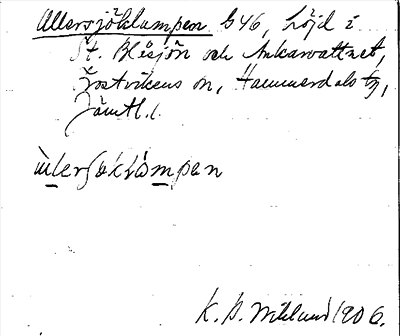 Ullersjöklumpen G46, höjd i
St. Blåsjön och Ankarvattnet,
Frostvikens sn, Hammerdals tg,
Jämtl. l.
K. B. Wiklund 1906.